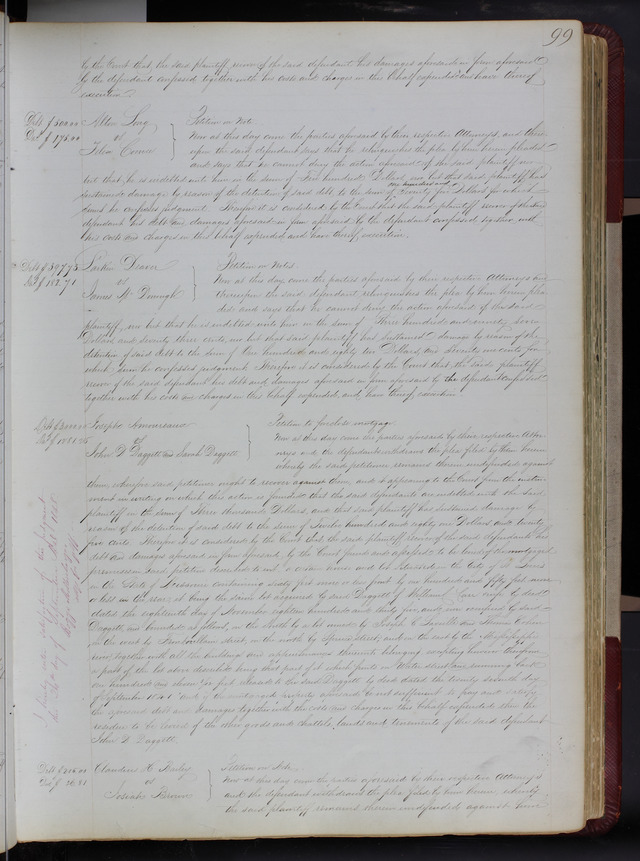 99
by the Court that the said plaintiff recover of the said defendant his damages aforesaid in form aforesaid
by the defendant confessed together with his costs and charges in this behalf expended and have thereof
execution
Debt $500.00
Dam $175.00
Long
vs
Petition on Note
Now at this day came the parties aforesaid by their respective Attorneys and there
upon the said defendant says that he relinquishes the plea by him herein pleaded
and says that he cannot deny the action aforesaid of the said plaintiff nor
but that he is indebted unto him in the sum of Five hundred Dollars, nor but that said plaintiff has
sustained damage by reason of the detention of said debt to the sum of one hundred and seventy five Dollars for which
sum he confesses judgment. Therefore it is considered by the Court that the said plaintiff recover of the said
defendant his debt and damages aforesaid in form aforesaid by the defendant confessed together with
his costs and charges in this behalf expended and have thereof execution.
Debt $397.73
Dam $182.71
Deaver
vs
James Mc Donough
Petition on Notes
Now at this day came the parties aforesaid by their respective Attorneys and
thereupon the said defendant relinquishes the plea by him herein plea
ded and says that he cannot deny the action aforesaid of the said
plaintiff, nor but that he is indebted unto him in the sum of Three hundred and ninety seven
Dollars and seventy three cents, nor but that said plaintiff has sustained damage by reason of the
detention of said debt to the sum of One hundred and eighty two Dollars and seventy one cents for
which sum he confessed judgment. Therefore it is considered by the Court that the said plaintiff
recover of the said defendant his debt and damages aforesaid in form aforesaid by the defendant confessed
together with his costs and charges in this behalf expended, and have thereof execution.
Joseph
vs
John D Daggett and Sarah Daggett
Petition to foreclose mortgage.
Now at this day came the parties aforesaid by their respective Attor-
neys and the defendants withdraws the plea filed by them herein
whereby the said petitioner remains therein undefended against
them, wherefore said petitioner ought to recover against them, and it appearing to the Court from the instru-
ment in writing on which this action is founded that the said defendants are indebted unto the said
plaintiff in the sum of Three thousand Dollars, and that said plaintiff has sustained damage by
reason of the detention of said debt to the sum of Twelve hundred and eighty one Dollars and twenty
five cents. Therefore it is considered by the Court that the said plaintiff recover of the said defendants his
debt and damages aforesaid in form aforesaid by the Court found and assessed to be levied of the mortgaged
premises in said petition described to wit
in the State of Missouri containing sixty feet more or less front by one hundred and fifty feet more
or less in the rear it being the same lot acquired by said Daggett of William Carr wife by deed
dated the eighteenth day of November eighteen hundred and thirty five and
Daggett and bounded as follows, on the South by a lot owned by
on the west by street, on the north by Spruce Street, and on the east by the Mississippi
river together with all the buildings and appurtenances thereunto belonging excepting however therefrom
a part of the lot above described being that part of it which fronts on Water street and running back
one hundred and feet to the said Daggett by deed dated the twenty seventh day
of September 1841 and if the mortgaged property aforesaid be not sufficient to pay and satisfy
the aforesaid debt and damages together with the costs and charges in this behalf expended then the
residue to be levied of the other goods and chattels, lands and tenements of the said defendant
John D. Daggett.
vs
Josiah Brown
Petition on Note
Now at this day came the parties aforesaid by their respective Attorneys
and the defendant withdraws the plea filed by him herein, whereby
the said plaintiff remains therein undefended against him